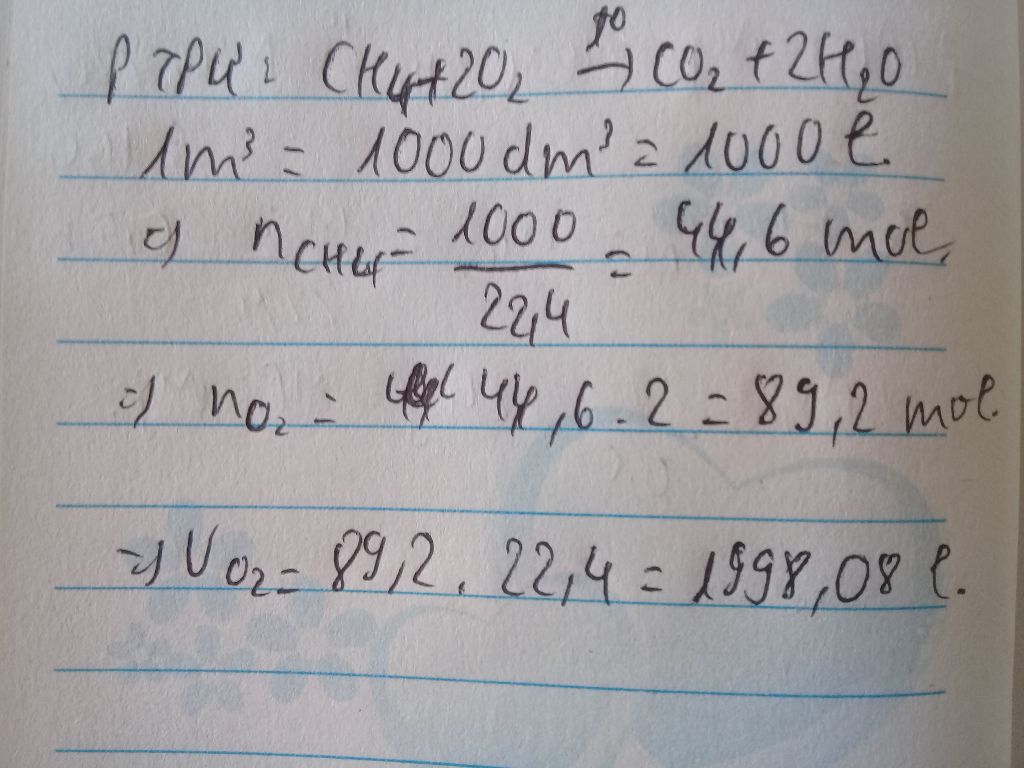 PTPƯ: CH4+2O2 t° → CO2 + 2H2O
1m³ = 1000 dm³ = 1000 l.
=) nCH4 = 1000/22,4 = 44,6 mol.
=) nO2 = 44,6 . 2 = 89,2 mol.
=) VO2 = 89,2 . 22,4 = 1998,08 l.